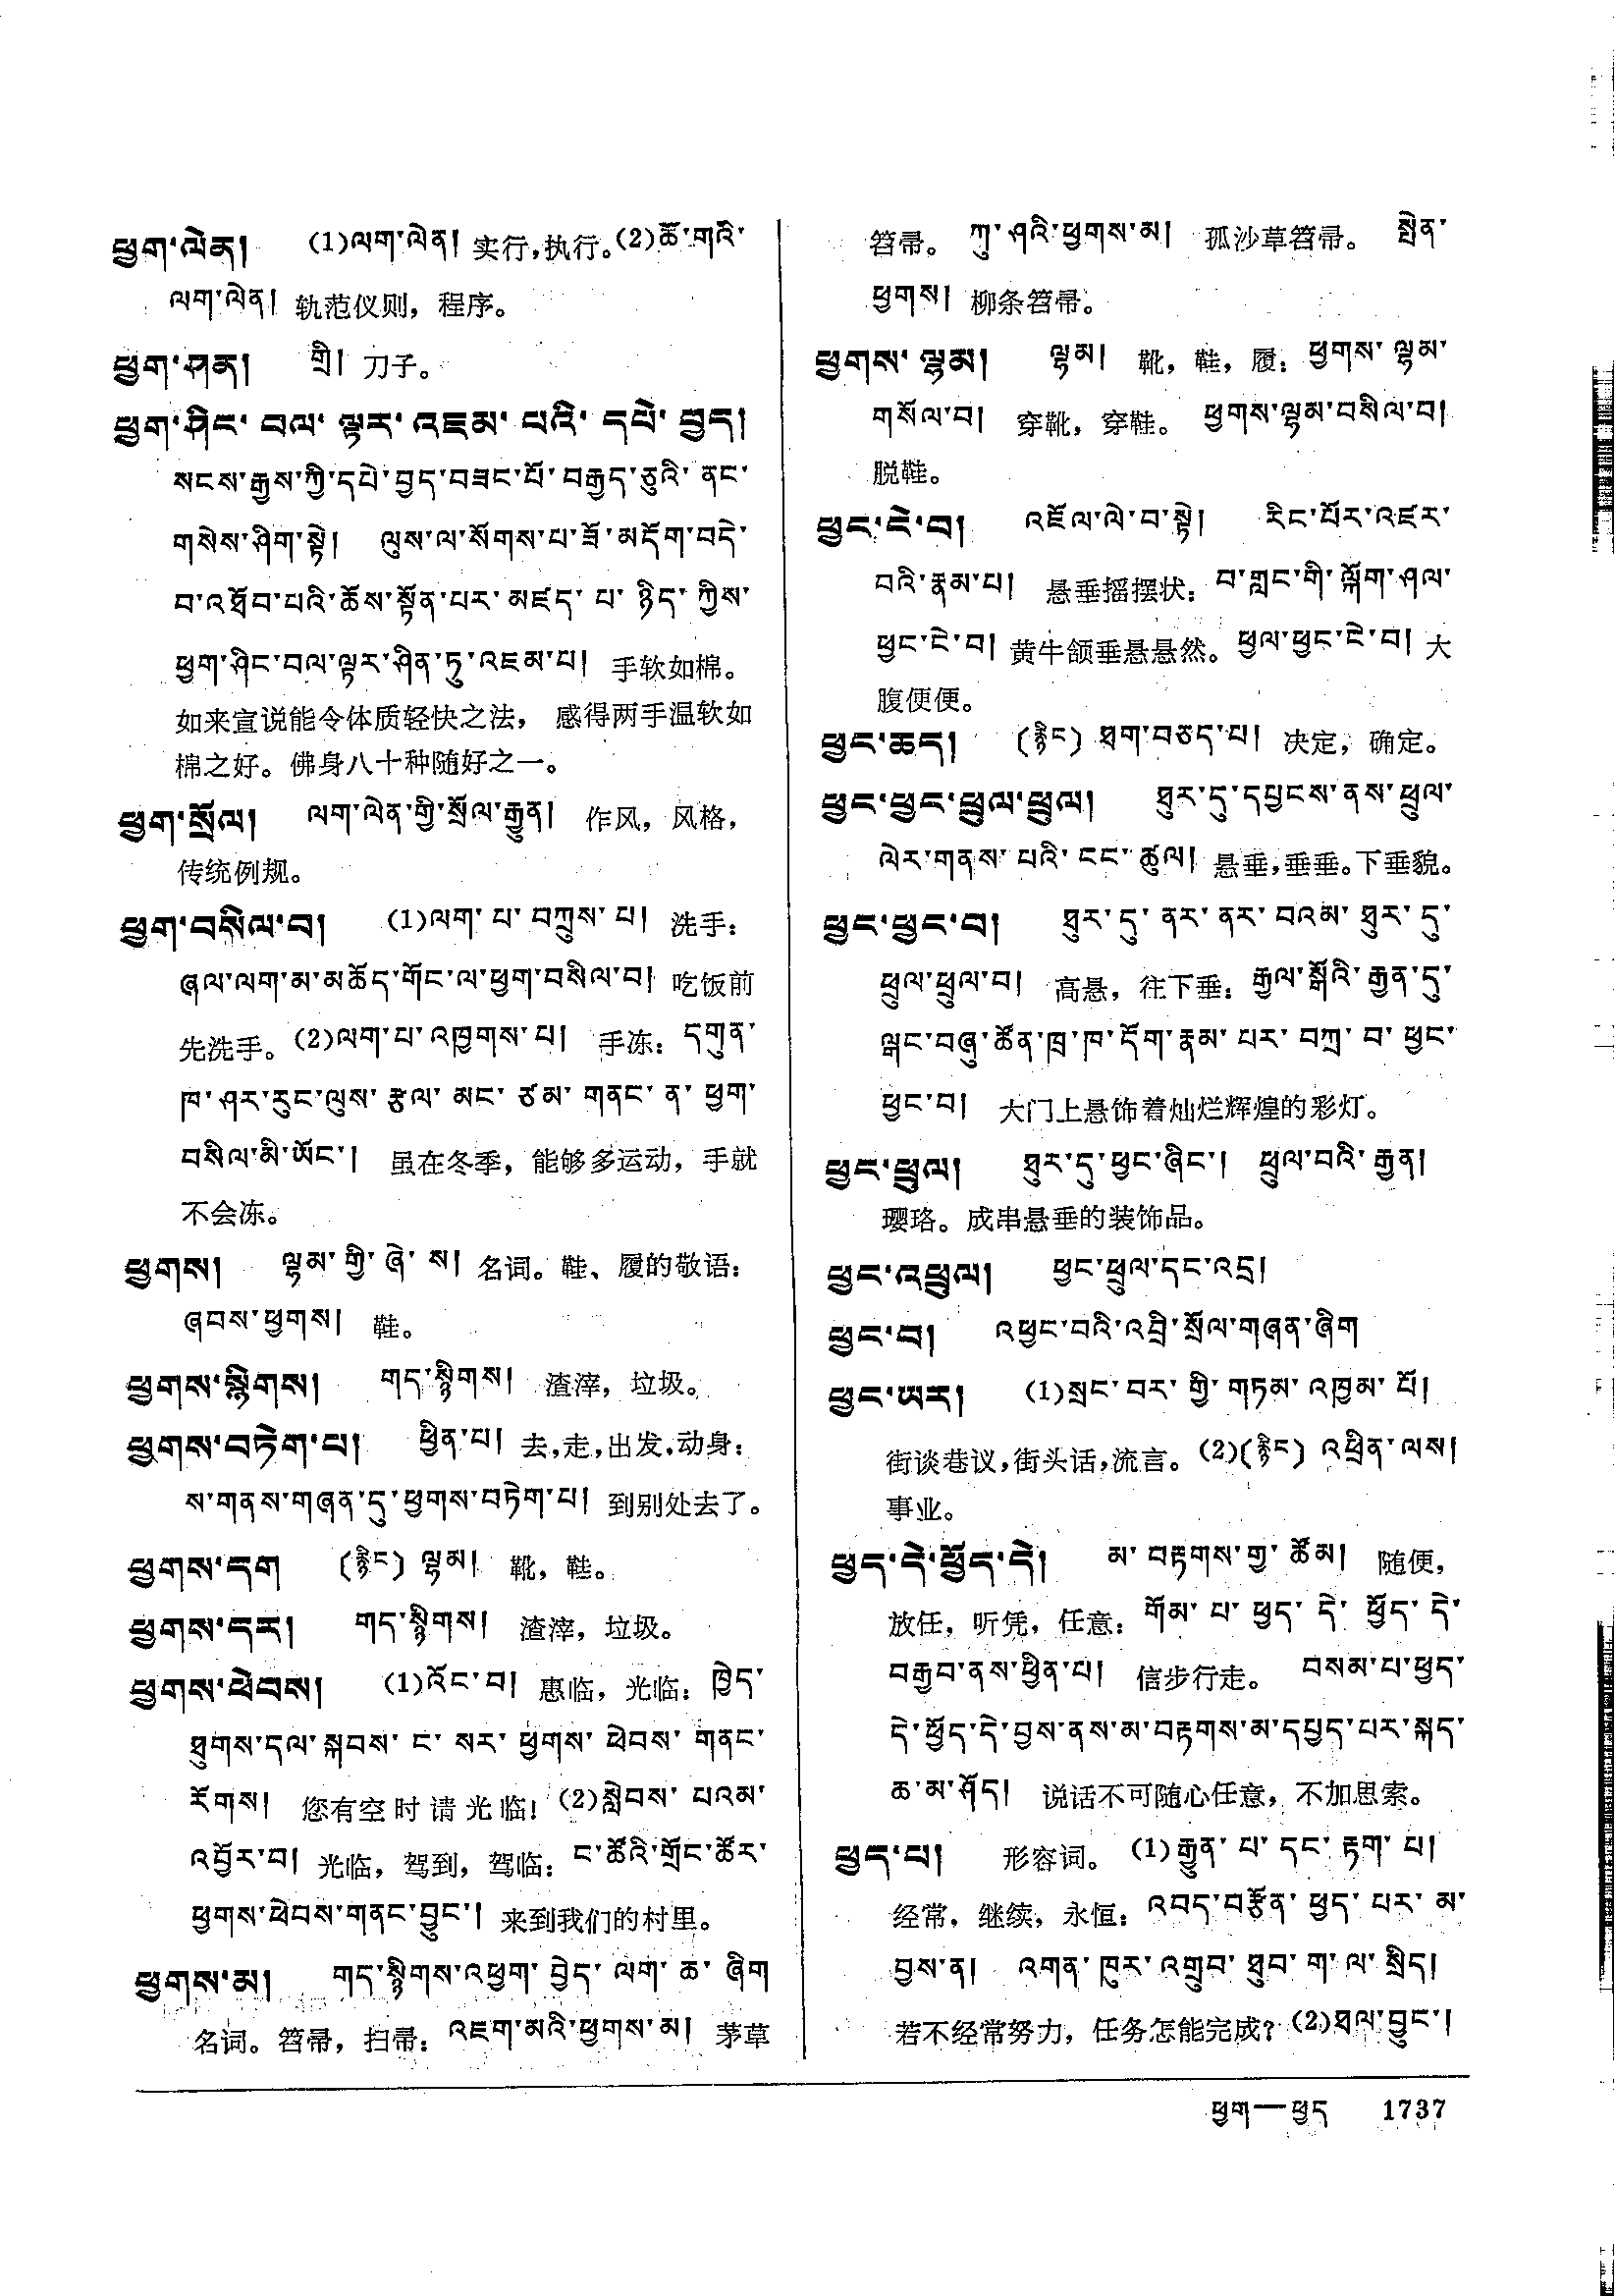 ཕྱག་ལེན། (1)ལག་ལེན། 实行,执行。(2)ཆོ་གའི་
ལག་ལེན། 轨范仪则，程序。
ཕྱག་ཤན། གྲི། 刀子。
ཕྱག་ཤིང་བལ་ལྟར་འཇམ་པའི་དཔེ་བྱད།
སངས་རྒྱས་ཀྱི་དཔེ་བྱད་བཟང་པོ་བརྒྱད་ཅུའི་ནང་
གསེས་ཤིག་སྟེ། ལུས་ལ་སོགས་པ་ཟོ་མདོག་བདེ་
བ་འཐོབ་པའི་ཆོས་སྟོན་པར་མཛད་པ་ཉིད་ཀྱིས་
ཕྱག་ཤིང་བལ་ལྟར་ཤིན་ཏུ་འཇམ་པ། 手软如棉。
如来宣说能令体质轻快之法， 感得两手温软如
棉之好。佛身八十种随好之一。
ཕྱག་སྲོལ། ལག་ལེན་གྱི་སྲོལ་རྒྱུན། 作风，风格，
传统例规。
ཕྱག་བསིལ་བ། (1)ལག་པ་བཀྲུས་པ། 洗手：
ཞལ་ལག་མ་མཆོད་གོང་ལ་ཕྱག་བསིལ་བ། 吃饭前
先洗手。(2)ལག་པ་འཁྱགས་པ། 手冻：དགུན་
ཁ་ཤར་རུང་ལུས་རྩལ་མང་ཙམ་གནང་ན་ཕྱག་
བསིལ་མི་ཡོང་། 虽在冬季，能够多运动，手就
不会冻。
ཕྱགས། ལྷམ་གྱི་ཞེ་ས། 名词。鞋、履的敬语：
ཞབས་ཕྱགས། 鞋。
ཕྱགས་སྙིགས། གད་སྙིགས། 渣滓，垃圾。
ཕྱགས་བཏེག་པ། ཕྱིན་པ། 去,走,出发,动身：
ས་གནས་གཞན་དུ་ཕྱགས་བཏེག་པ། 到别处去了。
ཕྱགས་དག (རྙིང) ལྷམ། 靴，鞋。
ཕྱགས་དར། གད་སྙིགས། 渣滓，垃圾。
ཕྱགས་ཕེབས། (1)འོང་བ། 惠临，光临：ཁྱེད་
ཐུགས་དལ་སྐབས་ང་སར་ཕྱགས་ཕེབས་གནང་
རོགས། 您有空时请光临！(2)སླེབས་པའམ་
འབྱོར་བ། 光临，驾到，驾临：ང་ཚོའི་གྲོང་ཚོར་
ཕྱགས་ཕེབས་གནང་བྱུང་། 来到我们的村里。
ཕྱགས་མ། གད་སྙིགས་འཕྱག་བྱེད་ལག་ཆ་ཞིག
名词。笤帚，扫帚：འཇག་མའི་ཕྱགས་མ། 茅草
笤帚。 ཀུ་ཤའི་ཕྱགས་མ། 孤沙草笤帚。 སྤེན་
ཕྱགས། 柳条笤帚。
ཕྱགས་ལྷམ། ལྷམ། 靴，鞋，履：ཕྱགས་ལྷམ་
གསོལ་བ། 穿靴，穿鞋。 ཕྱགས་ལྷམ་བསིལ་བ།
脱鞋。
ཕྱང་ངེ་བ། འཇོལ་ལེ་བ་སྟེ། རིང་པོར་འཛར་
བའི་རྣམ་པ། 悬垂摇摆状：བ་གླང་གི་ལྐོག་ཤལ་
ཕྱང་ངེ་བ། 黄牛颔垂悬悬然。ཕྱལ་ཕྱང་ངེ་བ། 大
腹便便。
ཕྱང་ཆད། (རྙིང) ཐག་བཅད་པ། 决定，确定。
ཕྱང་ཕྱང་ཕྲུལ་ཕྲུལ། ཐུར་དུ་དཔྱངས་ནས་ཕྲུལ་
ལེར་གནས་པའི་ངང་ཚུལ། 悬垂,垂垂。下垂貌。
ཕྱང་ཕྱང་བ། ཐུར་དུ་ནར་ནར་བའམ་ཐུར་དུ་
ཕྲུལ་ཕྲུལ་བ། 高悬，往下垂：རྒྱལ་སྒོའི་རྒྱན་དུ་
ལྒང་བཞུ་ཚོན་ཁྲ་ཁ་དོག་རྣམ་པར་བཀྲ་བ་ཕྱང་
ཕྱང་བ། 大门上悬饰着灿烂辉煌的彩灯。
ཕྱང་ཕྲུལ། ཐུར་དུ་ཕྱང་ཞིང་། ཕྲུལ་བའི་རྒྱན།
璎珞。成串悬垂的装饰品。
ཕྱང་འཕྲུལ། ཕྱང་ཕྲུལ་དང་འདྲ།
ཕྱང་བ། འཕྱང་བའི་འབྲི་སྲོལ་གཞན་ཞིག
ཕྱང་ཡར། (1)སྲང་བར་གྱི་གཏམ་འཁྱམ་པོ།
街谈巷议,街头话,流言。(2)(རྙིང) འཕྲིན་ལས།
事业。
ཕྱད་དེ་ཕྱོད་དེ། མ་བརྟགས་གྱ་ཚོམ། 随便，
放任，听凭，任意：གོམ་པ་ཕྱད་དེ་ཕྱོད་དེ་
བརྒྱབ་ནས་ཕྱིན་པ། 信步行走。 བསམ་པ་ཕྱད་
དེ་ཕྱོད་དེ་བྱས་ནས་མ་བརྟགས་མ་དཔྱད་པར་སྐད་
ཆ་མ་ཤོད། 说话不可随心任意，不加思索。
ཕྱད་པ། 形容词。 (1)རྒྱུན་པ་དང་རྟག་པ།
经常，继续，永恒：འབད་བརྩོན་ཕྱད་པར་མ་
བྱས་ན། འགན་ཁུར་འགྲུབ་ཐུབ་ག་ལ་སྲིད།
若不经常努力，任务怎能完成？(2)ཐལ་བྱུང་།
ཕྱག—ཕྱད 1737